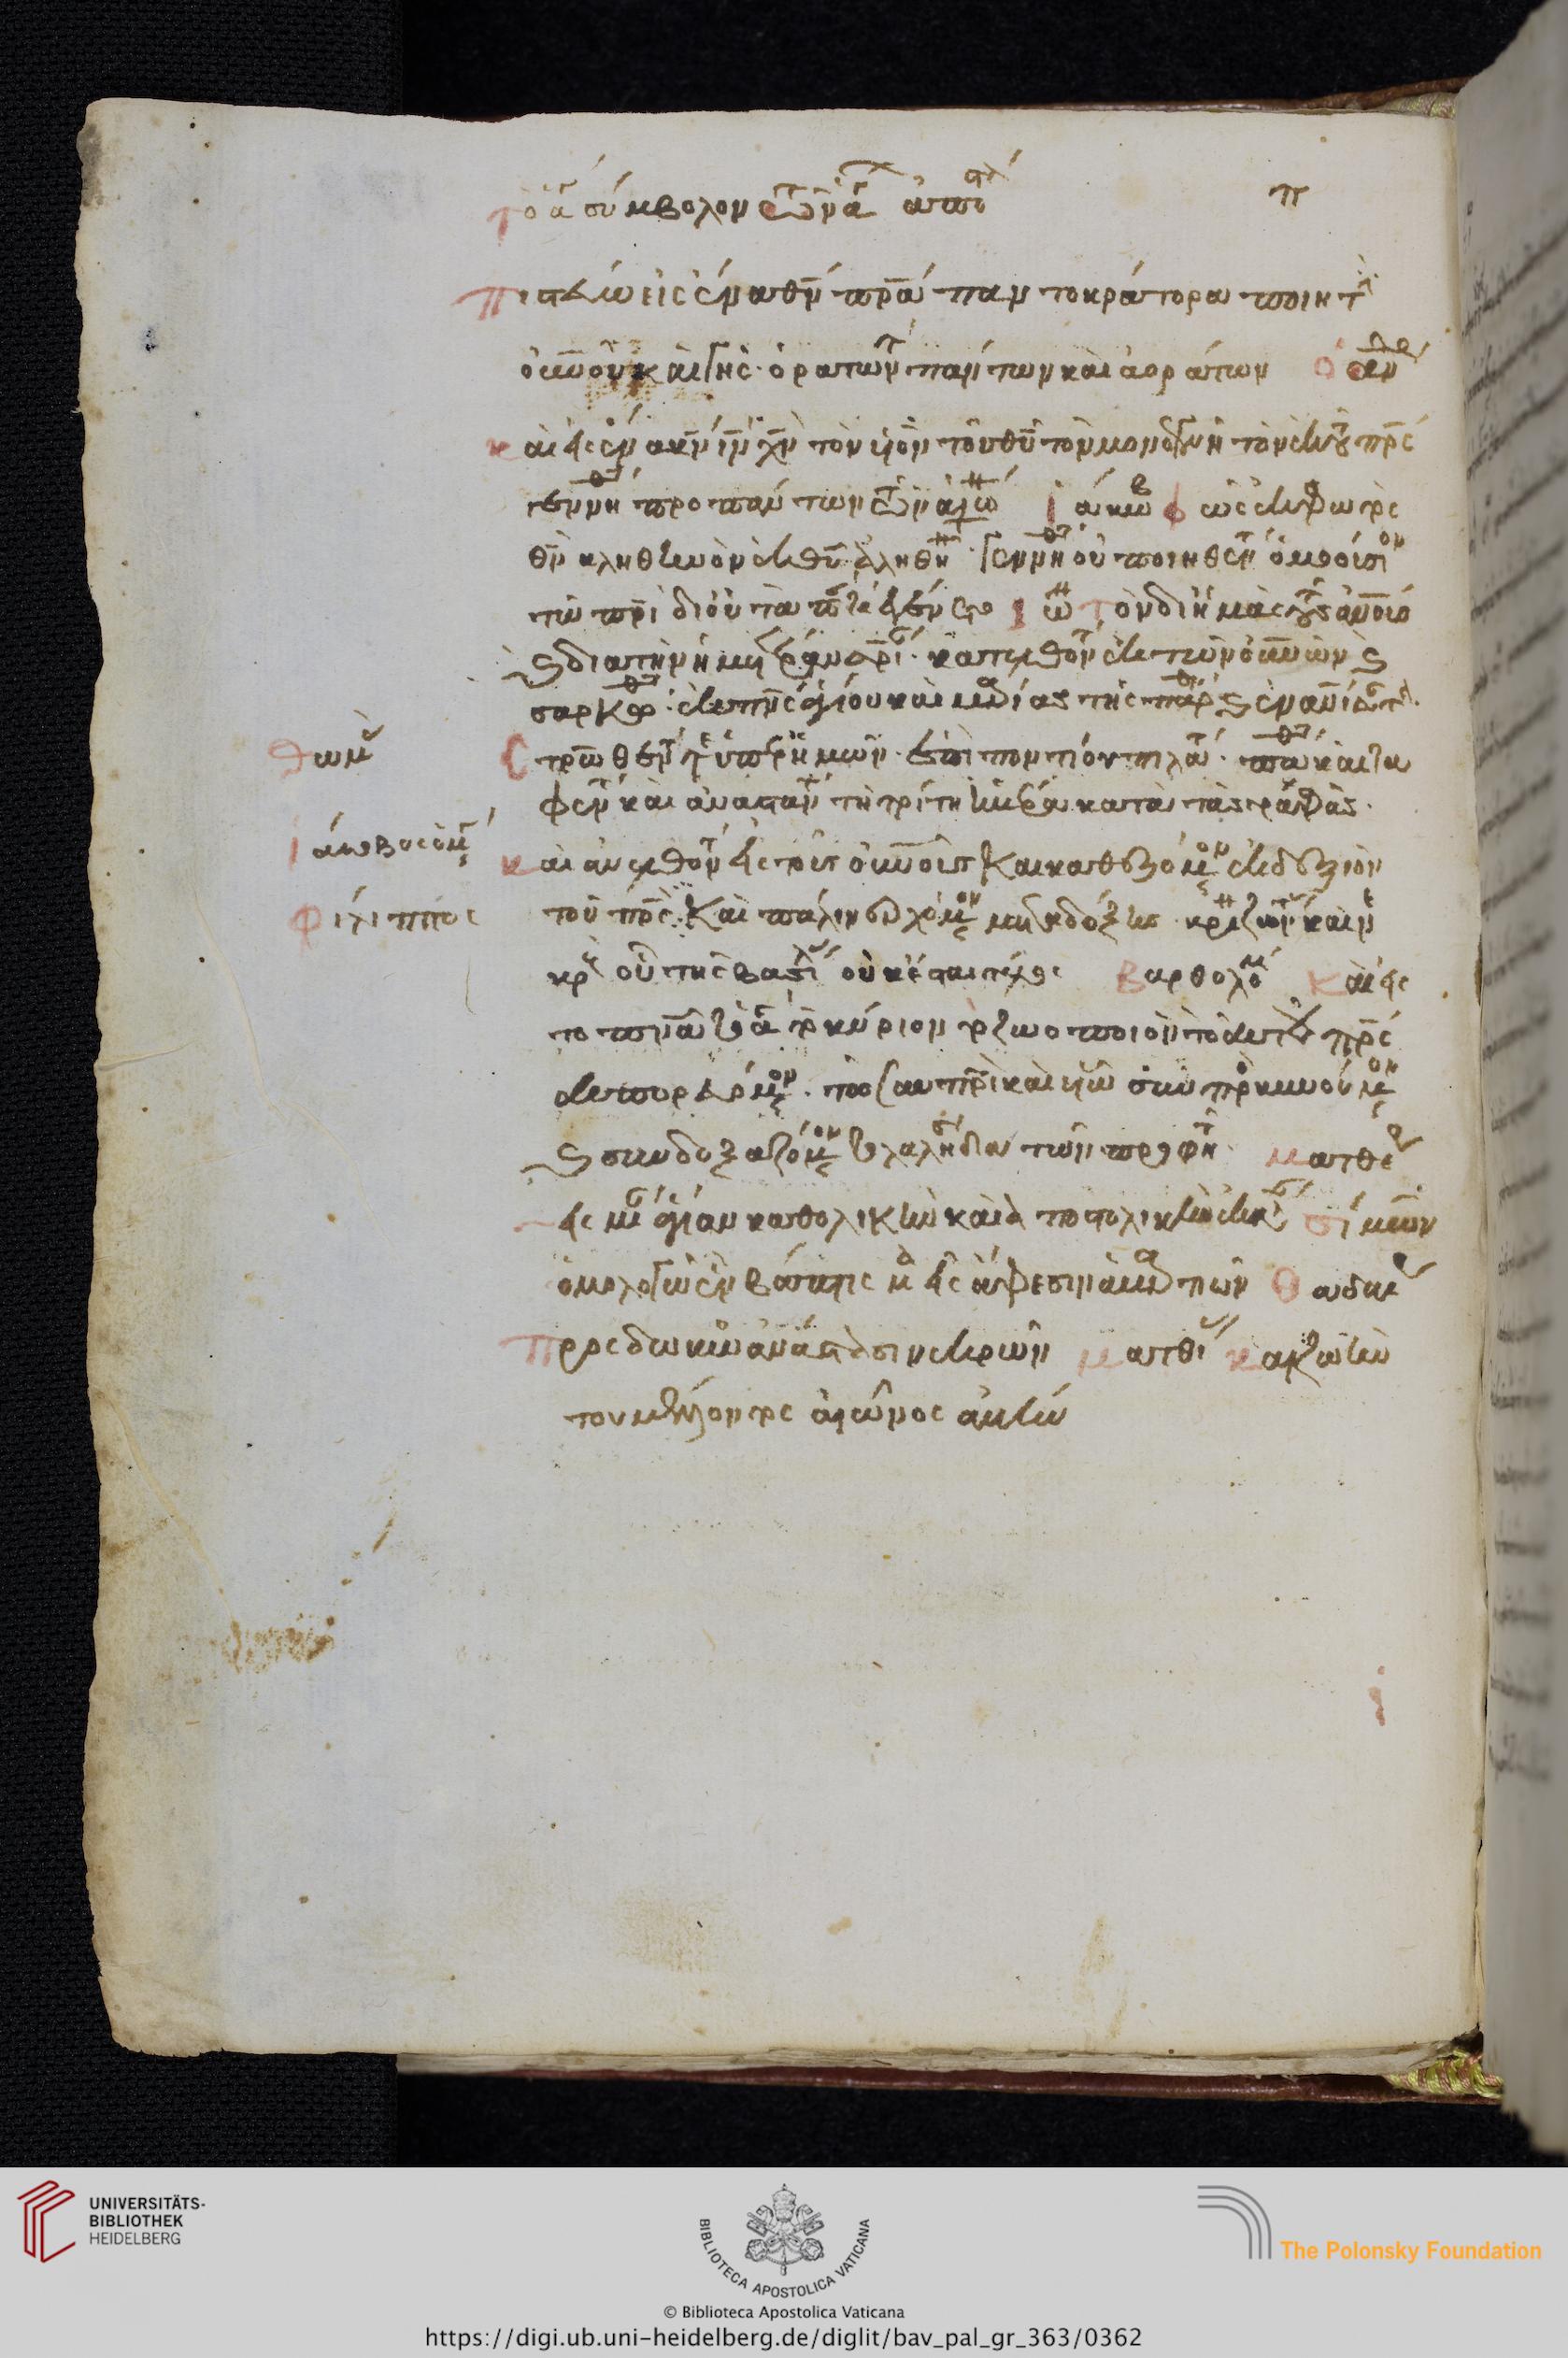 το ἅ(γιον) σύμβολον τῶν ἁ(γίων) ἀποστ(όλων) π
πιστεύω εἰς ἕνα θν πρα παντοκράτορα ποιητὴν
οὐνοῦ καὶ γῆς ὁρατῶν πάντων καὶ ἀοράτων ὁ
καὶ εἰς ἕνα κν ιν χν τὸν υἱὸν τοῦ θυ τὸν μονογενῆ τὸν ἐκ τοῦ πρς
γεννηθέντα προ πάντων τῶν αἰώνων ἰάκωβ φῶς ἐκ φωτὸς
θν ἀληθινὸν ἐκ θυ ἀληθινοῦ γεννηθέντα οὐ ποιηθέντα ὁμοούσιον
τῷ πρι δι οὗ τὰ πάντα ἐγένετο ἰω τὸν δι ἡμᾶς τοὺς ἀνους
καὶ διὰ τὴν ἡμετέραν σριαν κατελθόντα ἐκ τῶν οὐνῶν καὶ
σαρκωθέντα ἐκ πνς ἁγίου καὶ μαρίας τῆς παρθένου καὶ ἐνανθρωπήσαντα
θωμᾶς
σταυρωθέντα τε ὑπὲρ ἡμῶν ἐπὶ ποντίου πιλάτου παθόντα καὶ τα
φέντα καὶ ἀναστάντα τῇ τρίτῃ ἡμέρᾳ κατὰ τὰς γραφάς
ἰάκωβος ὁμ
καὶ ἀνελθόντα εἰς τοὺς οὐνοὺς καὶ καθεζόμενον ἐκ δεξιῶν
φίλιππος
τοῦ πρς καὶ πάλιν ἐρχόμενον μετὰ δόξης κρῖναι ζῶντας καὶ νε
κροὺς οὗ τῆς βασιλείας οὐκ ἔσται τέλος βαρθολομ καὶ εἰς
το πνα τὸ ἅγιον τὸ κύριον τὸ ζωοποιὸν τὸ ἐκ τοῦ πρς
ἐκπορευόμενον τὸ σὺν πρι καὶ υἱῷ συμπροσκυνούμενον
καὶ συνδοξαζόμενον τὸ λαλῆσαν διὰ τῶν προφητῶν ματθε
εἰς μίαν ἁγίαν καθολικὴν καὶ ἀποστολικὴν ἐκκλησίαν σίμων
ὁμολογῶ ἓν βάπτισμα εἰς ἄφεσιν ἁμαρτιῶν θαδαι
προσδοκῶ ἀνάστασιν νεκρῶν ματθι καὶ ζωὴν
τοῦ μέλλοντος αἰῶνος ἀμήν
UNIVERSITÄTS-
BIBLIOTHEK
HEIDELBERG
BIBLIOTECA APOSTOLICA VATICANA
The Polonsky Foundation
© Biblioteca Apostolica Vaticana
https://digi.ub.uni-heidelberg.de/diglit/bav_pal_gr_363/0362